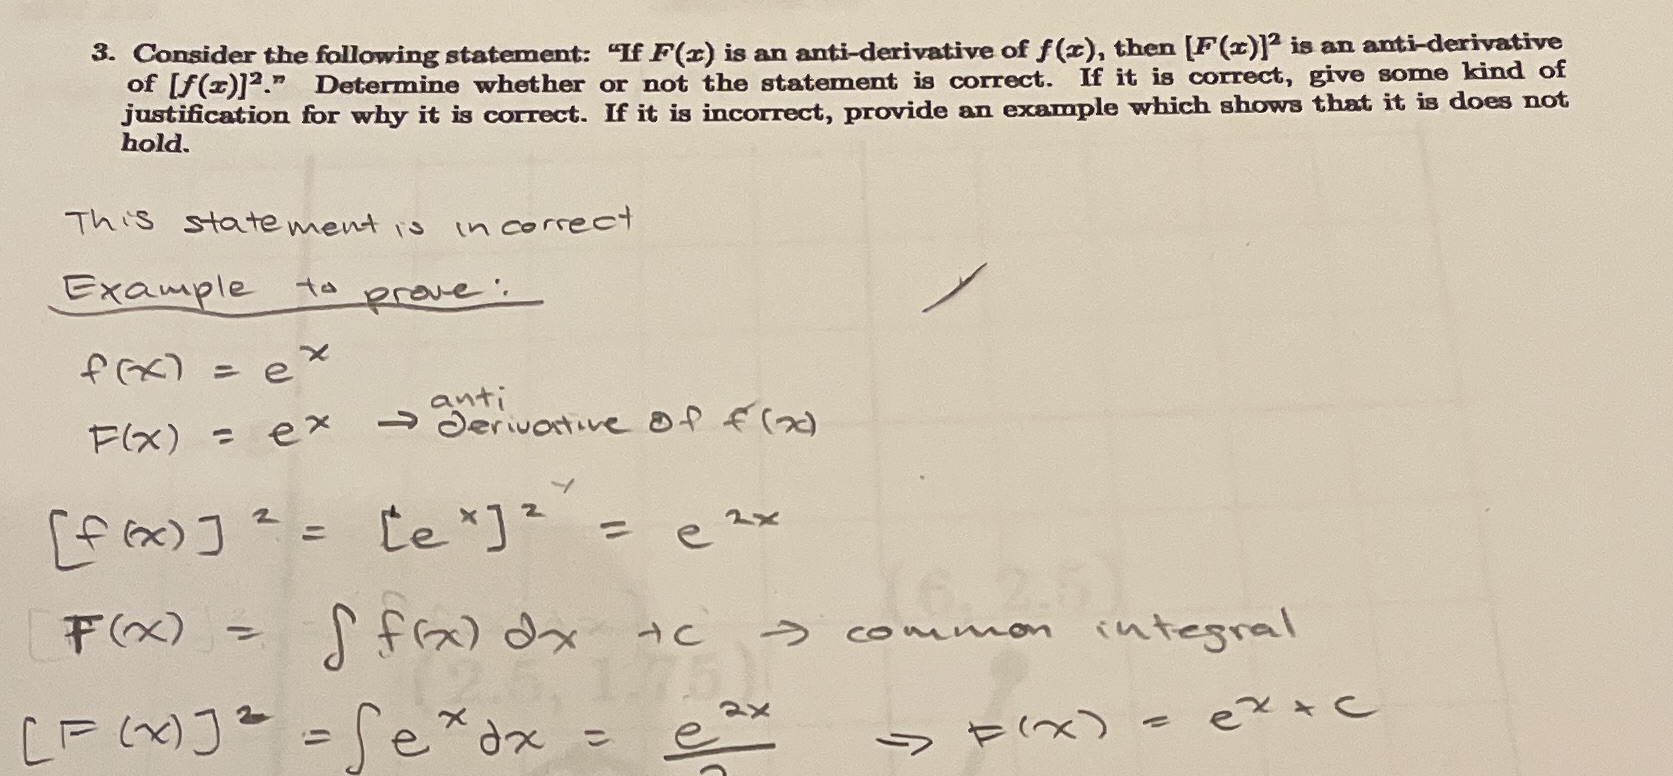 3. Consider the following statement: "If F(x) is an anti-derivative of f(x), then [F(x)]² is an anti-derivative
of [f(x)]²." Determine whether or not the statement is correct. If it is correct, give some kind of
justification for why it is correct. If it is incorrect, provide an example which shows that it is does not
hold.
This statement is incorrect
Example to prove:
f(x) = eˣ
F(x) = eˣ → anti derivative of f(x)
[f(x)]² = [eˣ]² = e²ˣ
F(x) = ∫ f(x) dx + c → common integral
[F(x)]² = ∫ eˣ dx = e²ˣ/2 → F(x) = eˣ + c